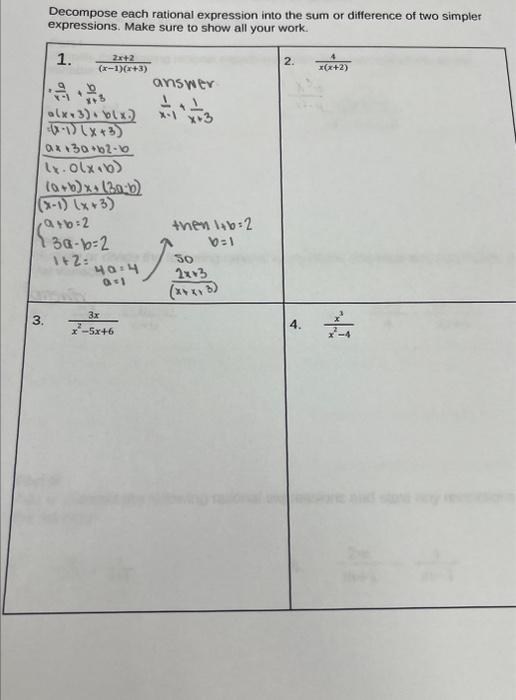 Decompose each rational expression into the sum or difference of two simpler
expressions. Make sure to show all your work.
1. 2x+2
(x−1)(x+3)
answer
= a/x-1 + b/x+3
1/x-1 + 1/x+3
a(x+3)+b(x-)
(x-1)(x+3)
ax+3a+b2-b
(a+b)x+(3a-b)
(x-1)(x+3)
{a+b=2
3a-b=2
1+2=
4a=4
a=1
then 1+b=2
b=1
so
2x+3
2. 4
x(x+2)
3. 3x
x²−5x+6
4. x³
x²−4